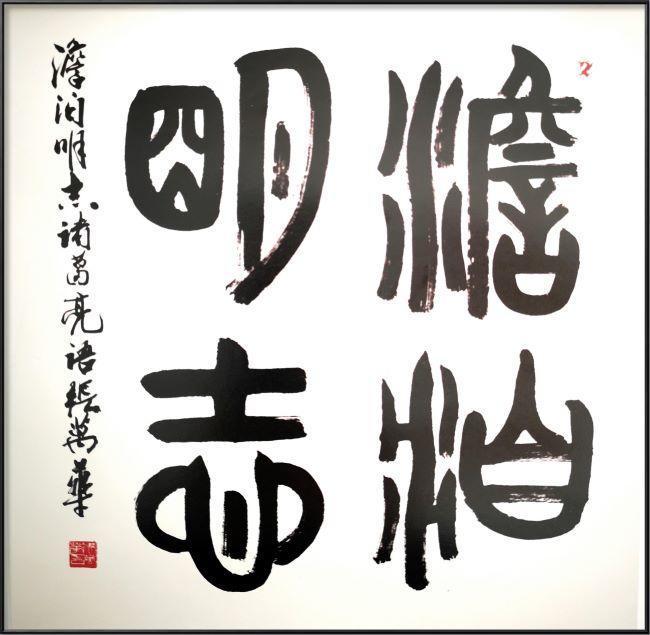 澹泊
明志
澹泊明志諸葛亮語張萬華